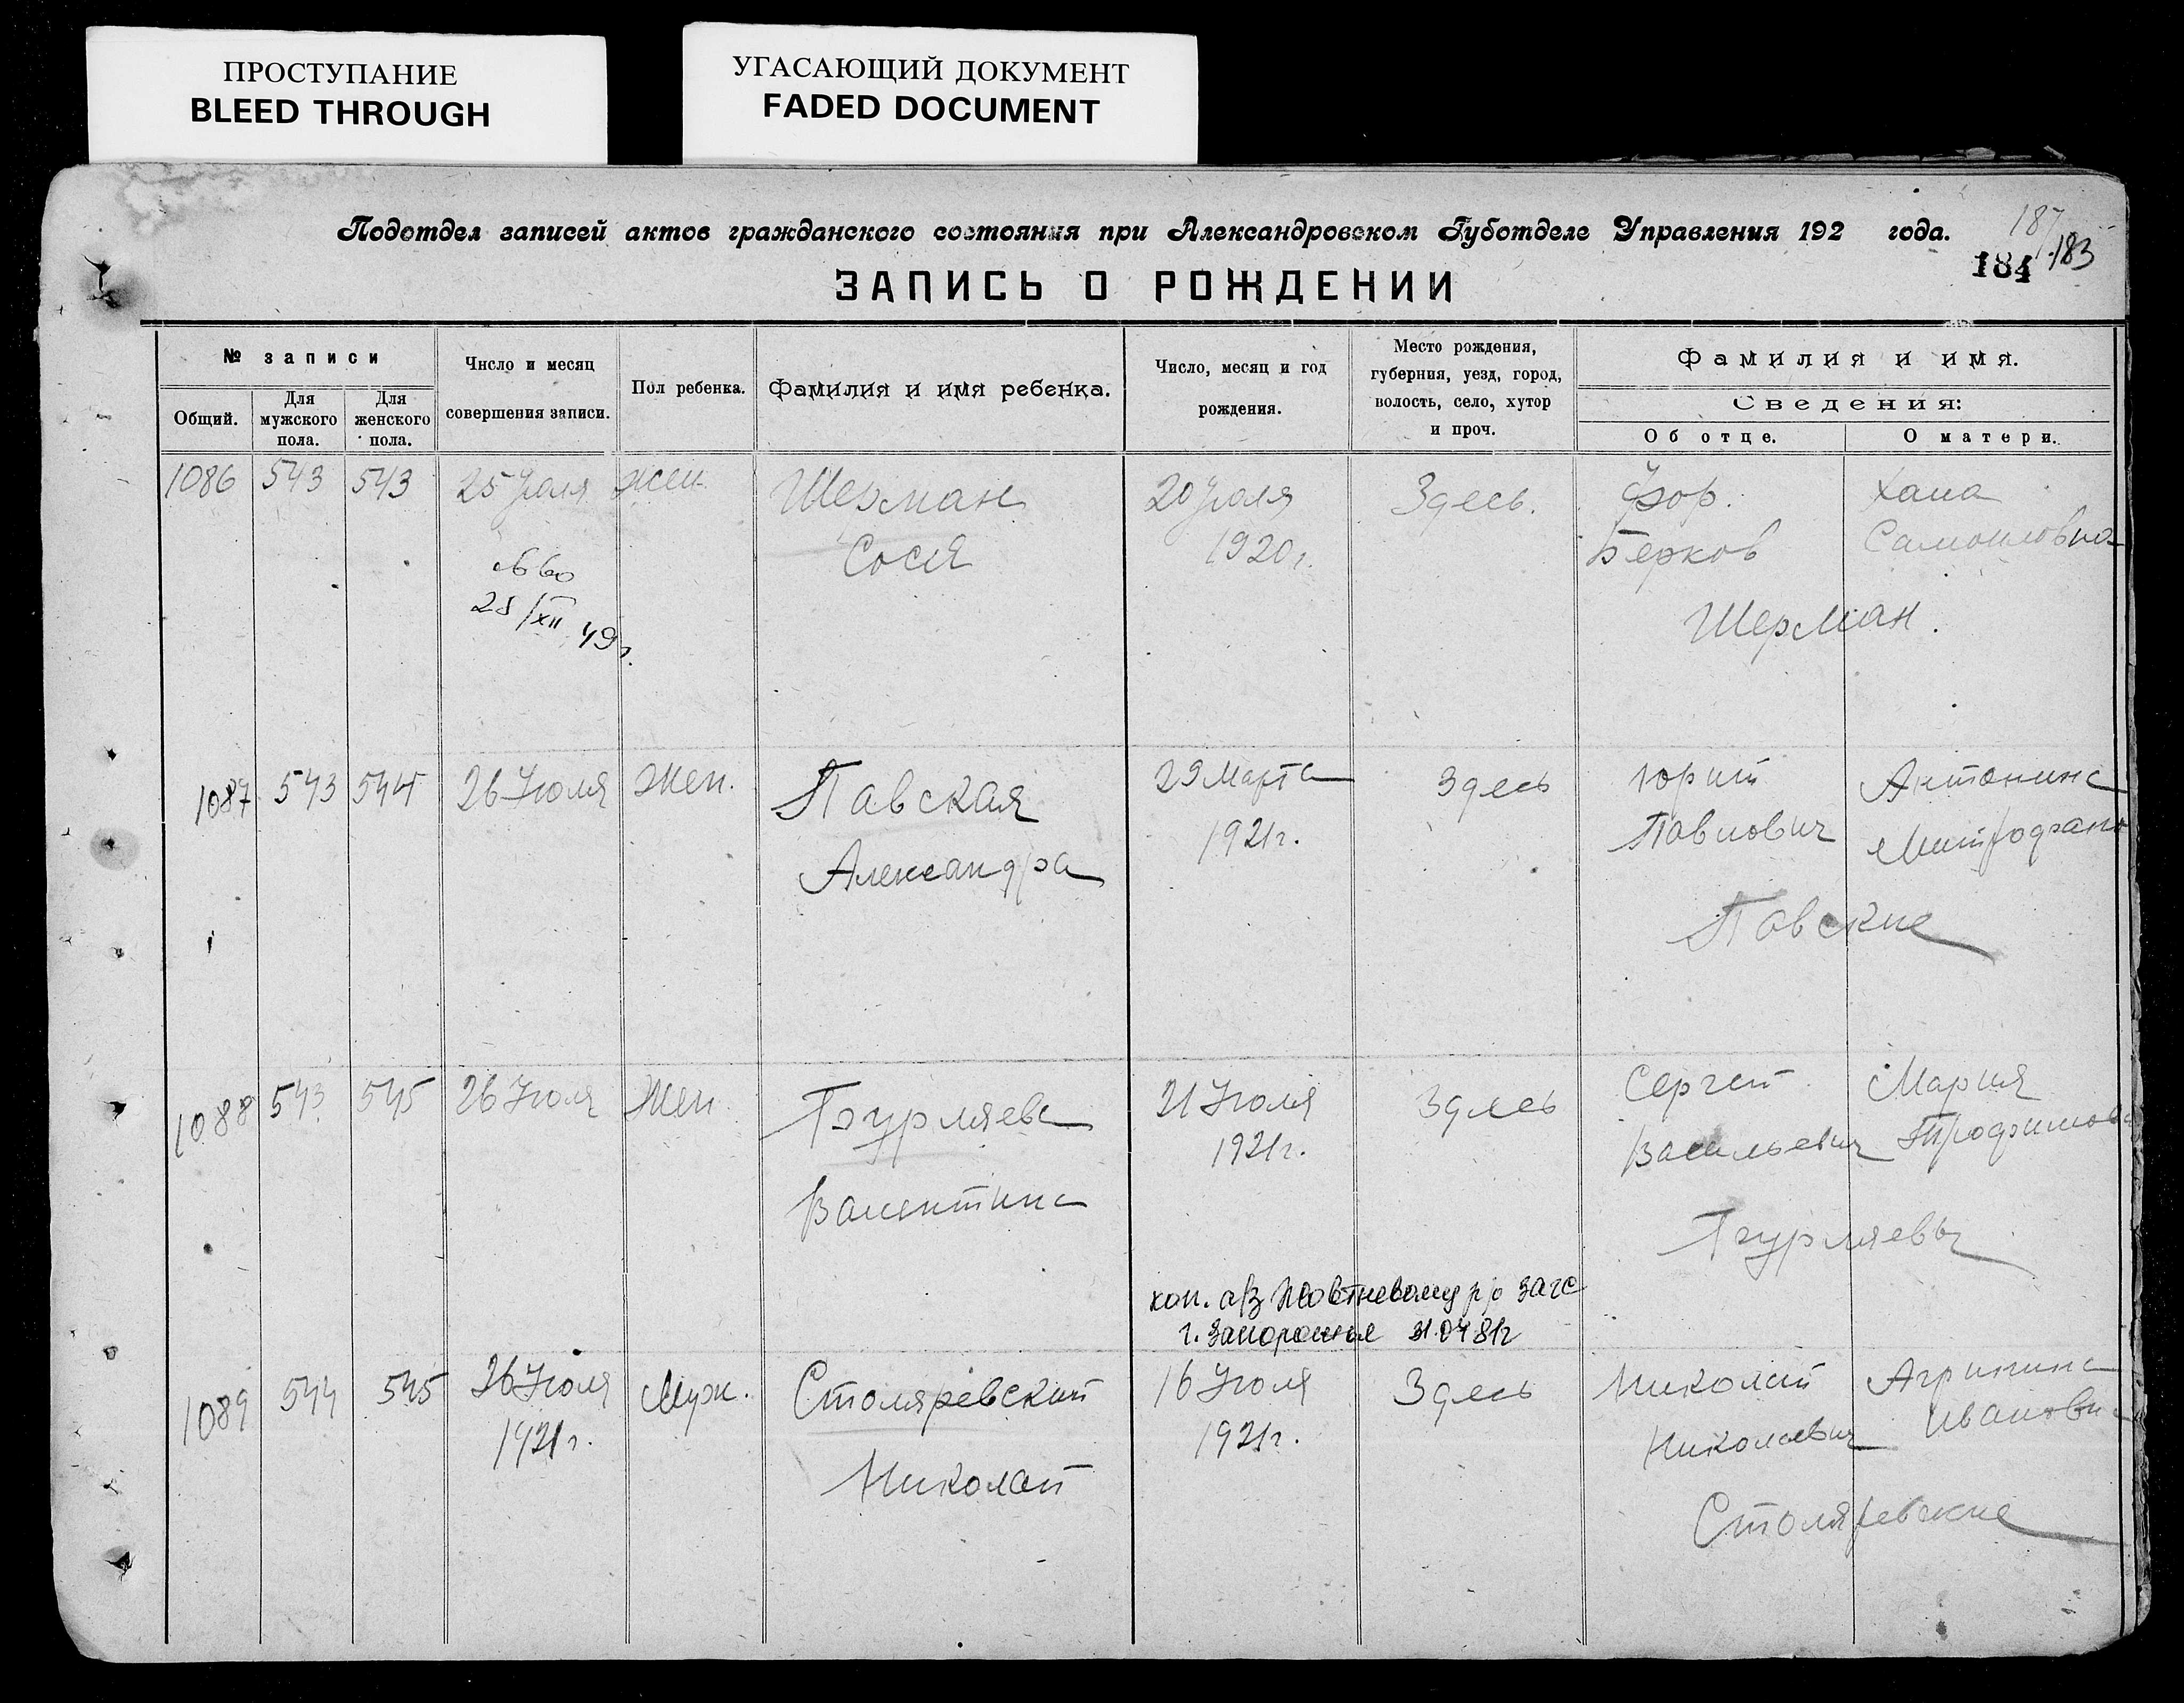 ПРОСТУПАНИЕ
BLEED THROUGH
УГАСАЮЩИЙ ДОКУМЕНТ
FADED DOCUMENT
Подотдел записей актов гражданского состояния при Александровском Губотделе Управления 192 года.
187
184 183
ЗАПИСЬ О РОЖДЕНИИ
№ записи
Общий.
Для мужского пола.
Для женского пола.
Число и месяц
совершения записи.
Пол ребенка.
Фамилия и имя ребенка.
Число, месяц и год
рождения.
Место рождения,
губерния, уезд, город,
волость, село, хутор
и проч.
Фамилия и имя.
Сведения:
Об отце.
О матери.
1086 543 543 25 Июля жен. Шерман 20 Июля Здесь. Хана
Сося 1920 г. Берков Самоиловна
28/XII 49г.
Шерман.
1087 543 544 26 Июля Жен. Павская 29 Марта Здесь Юрий Антонина
Александра 1921г. Павлович Митрофано
Павские
1088 543 545 26 Июля Жен 21 Июля Здесь Сергей Мария
Валентина 1921г. Васильевич Трофимов
коп. а/з Жовтневому р/о загс
г. Запорожье 31.07 81г
1089 544 545 26 Июля Муж. Столяревский 16 Июля Здесь Николай Агрипина
1921г. Николай 1921г. Николаевич Ивановн
Столяревские